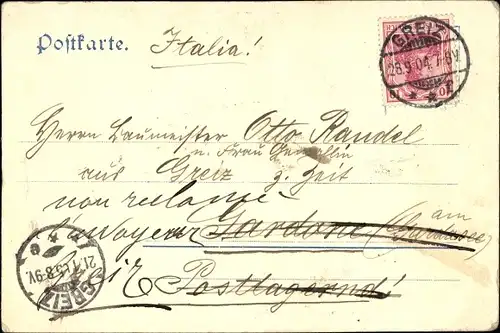 Postkarte. Italia!
GREIZ
28.9.04. 7-8V.
10 10
Herrn Baumeister Otto Randel
u. Frau Gemahlin
aus Greiz z. Zeit
non reclamé
envoyer Gardone am
(Gardasee)
Greiz Postlagernd!
GREIZ
21.11. 8-9V.